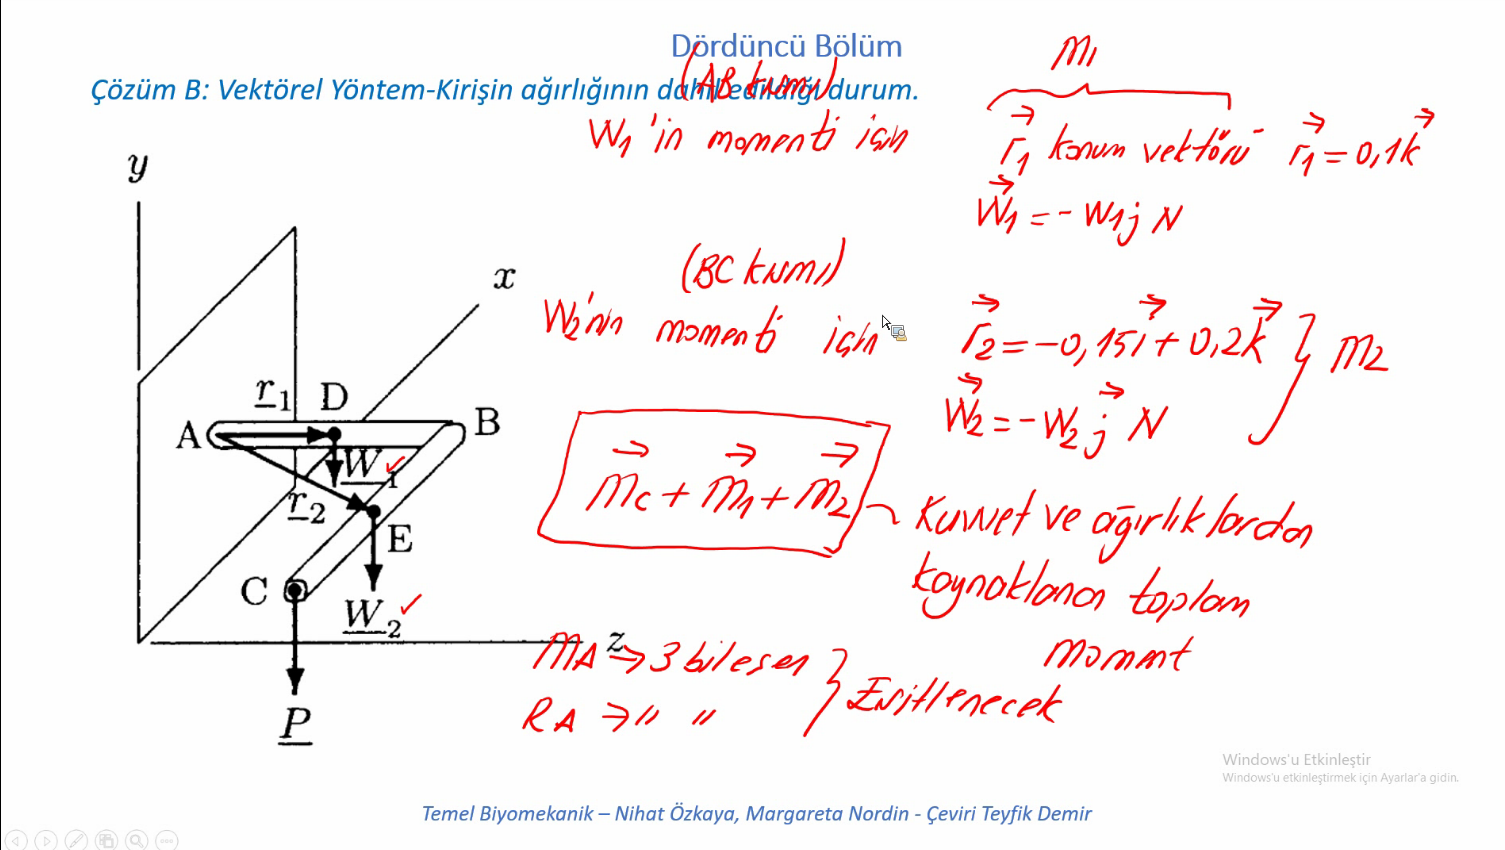 Dördüncü Bölüm
Çözüm B: Vektörel Yöntem-Kirişin ağırlığının dahil edildiği durum.
(AB kısmı)
W1'in momenti için
M1
r1 konum vektörü r1 = 0,1k
W1 = - W1j N
(BC kısmı)
W2'nin momenti için
r2 = -0,15i + 0,2k } M2
W2 = -W2 j N
Mc + M1 + M2
Kuvvet ve ağırlıklardan
kaynaklanan toplam
moment
MA → 3 bileşen } Eşitlenecek
RA → " "
y
x
z
r1 D
A
B
W1
r2
E
C
W2
P
Windows'u Etkinleştir
Windows'u etkinleştirmek için Ayarlar'a gidin.
Temel Biyomekanik – Nihat Özkaya, Margareta Nordin - Çeviri Teyfik Demir